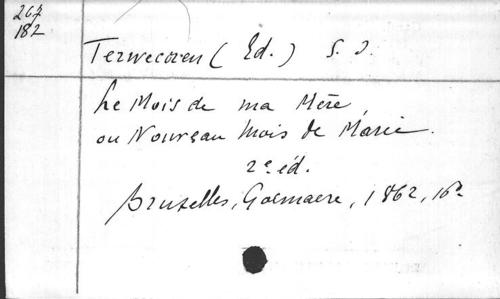 267
182
Terwecoren (Ed.) S. J.
Le Mois de ma Mère,
ou Nouveau Mois de Marie.
2e éd.
Bruxelles, Goemaere, 1862, 16°